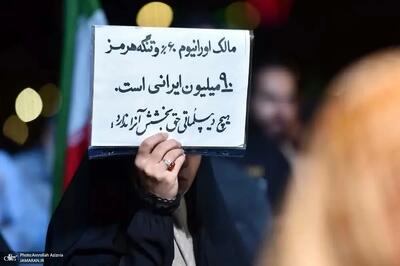 مالک اورانیوم ۶۰٪ و تنگه هرمز
۹۰ میلیون ایرانی است.
هیچ دیپلماتی حق بخشش آنرا ندارد!
Photo:Amrollah Aslania
JAMARAN.IR